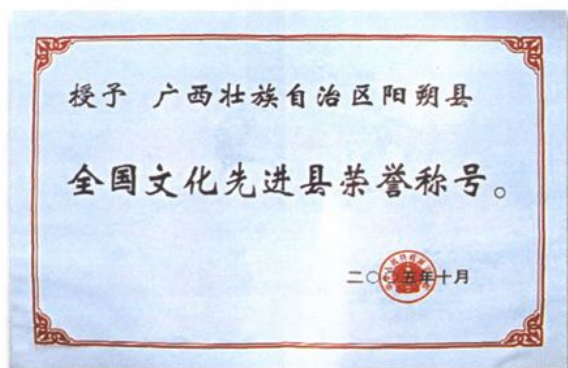 授予 广西壮族自治区阳朔县
全国文化先进县荣誉称号。
二〇〇五年十月